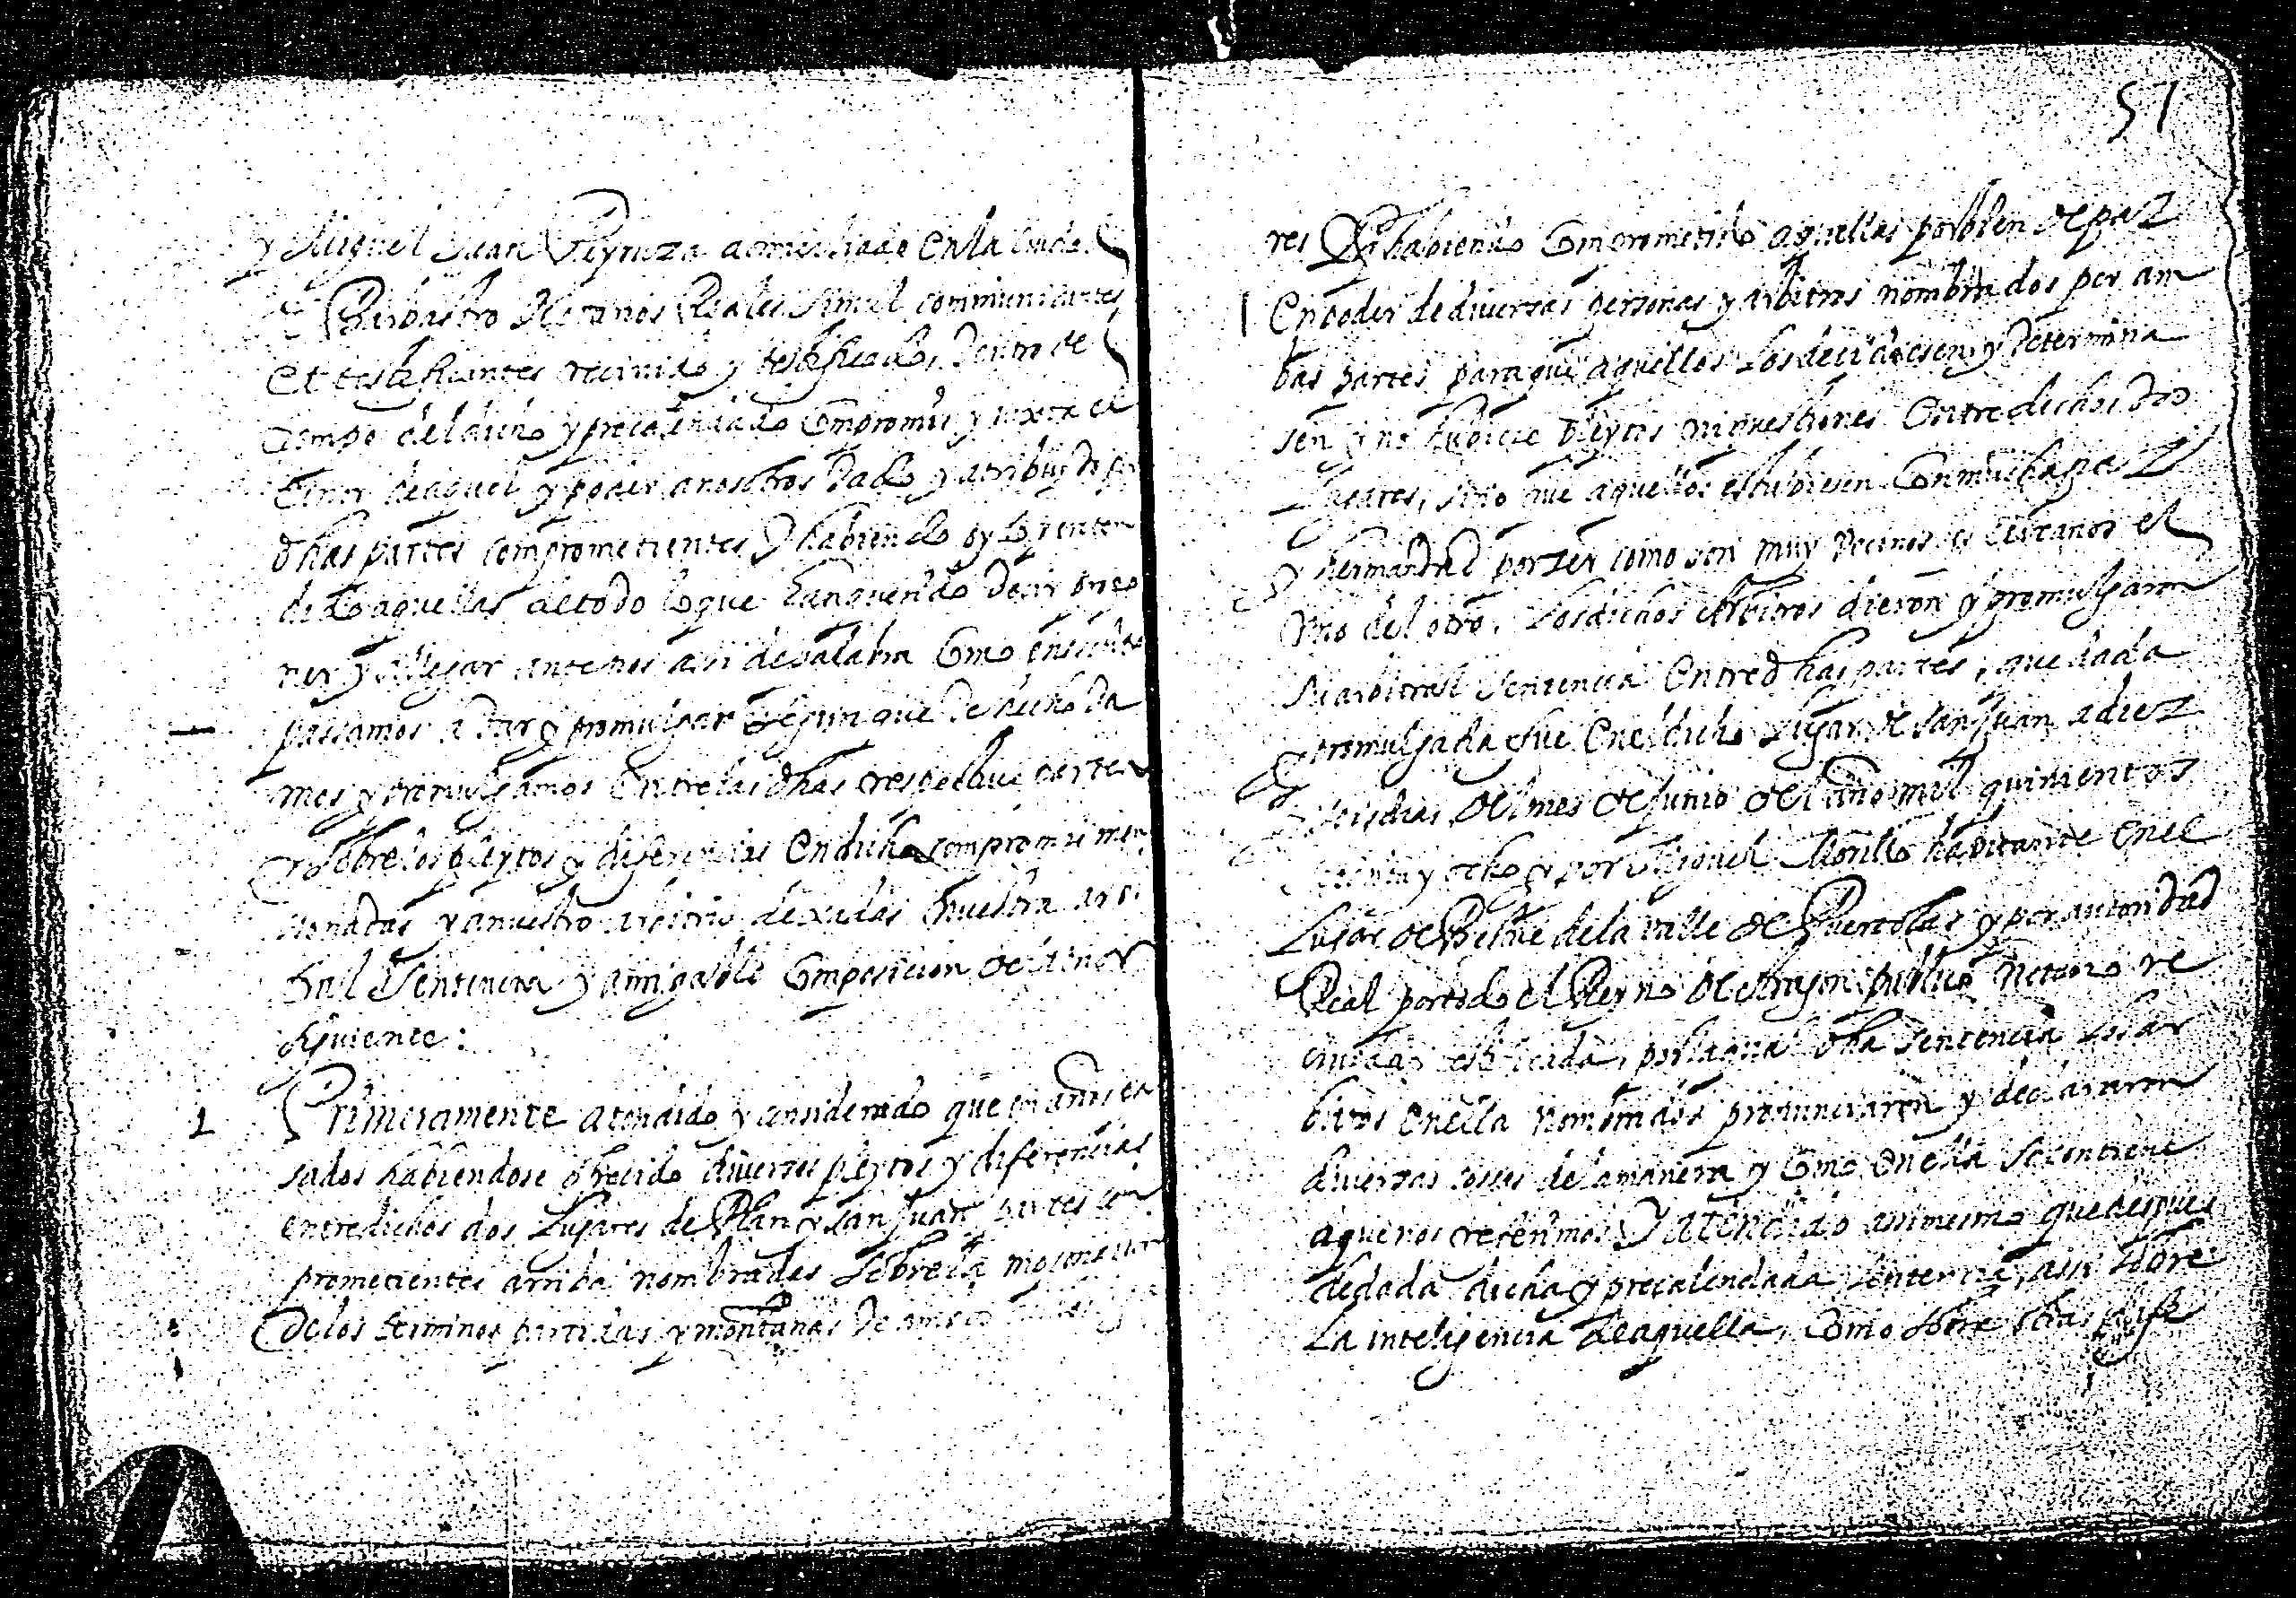 y Miguel Juan Peyruza domiciliado en la ciudad
de Barbastro Notarios Reales simul communicantes
et testificantes recivido y testificado, dentro de
tiempo del dicho y precalendado Compromis y juxta el
tenor de aquel y poder a nosotros dado y atribuydo por
dhas partes comprometientes Y habiendo oydo y enten
dido aquellas de todo lo que han querido decir propo
ner y allegar ante nos assi de palabra Como en scriptis
passamos a Dar y promulgar segun que de hecho Da
mos y promulgamos Entre las dhas respective partes
y sobre los pleytos y diferencias en dicho compromis men
cionadas y a nuestro arbitrio dexadas nuestra arbi
tral Sentencia y amigable Composicion del tenor
siguiente:
1 Primeramente atendido y considerado que en años pa
sados habiendose ofrecido diverses pleytos y diferencias
entre dichos dos Lugares de Plan y San Juan partes com
prometientes arriba nombradas Sobre la
De los terminos partidas y montañas de
57
res Y habiendo Comprometido aquellas por bien de paz
En poder de diversas personas y arbitros nombrados por am
bas partes para que aquellos los decidiesen y Determina
sen y no hubiese pleytos ni questiones Entre dichos dos
Lugares, sino que aquellos estubiesen Con mucha paz
y hermandad por ser como son muy vecinos y cercanos el
Uno del otro. Los dichos Arbitros dieron y promulgaron
su arbitral Sentencia Entre dhas partes, que dada
y promulgada fue En el dicho Lugar de San Juan a diez
y seis dias del mes de Junio del año mil quinientos
y ocho y por Miguel Morillo habitante en el
Lugar de Belsue de la valle de Puertolas y por autoridad
Real por todo el Reyno de Aragon publico Notario re
civida y testificada, por la qual dha Sentencia Los ar
bitros En ella nombrados pronunciaron y declararon
diversas cosas de la manera y Como En ella se contiene
a que nos referimos Y atendido assimesmo que despues
de dada dicha y precalendada sentencia, assi sobre
La inteligencia de aquella, Como sobre otras dife